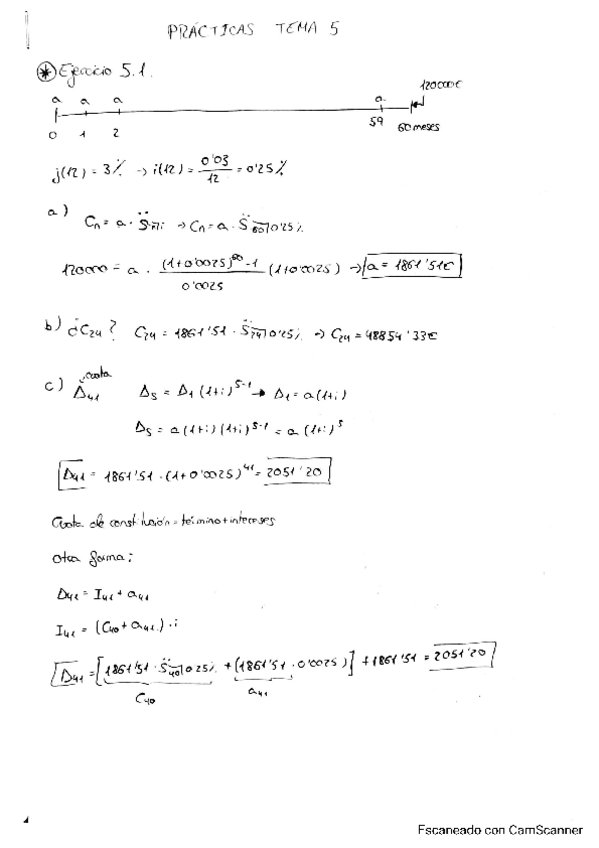 PRÁCTICAS TEMA 5
* Ejercicio 5.1.
120000€
a a a a
0 1 2 59 60 meses
j(12) = 3% → i(12) = 0'03 / 12 = 0'25%
a) Cn = a · S̈n¬i → Cn = a · S̈60¬0'25%
120000 = a · (1+0'0025)^60 - 1 / 0'0025 (1+0'0025) → a = 1861'51€
b) ¿C24? C24 = 1861'51 · S̈24¬0'25% → C24 = 48854'33€
cuota
c) Δ41 Δs = Δ1 (1+i)^s-1 → Δ1 = a(1+i)
Δs = a(1+i)(1+i)^s-1 = a(1+i)^s
Δ41 = 1861'51 · (1+0'0025)^41 = 2051'20
Cuota de constitución = término + intereses
otra forma:
Δ41 = I41 + a41
I41 = (C40 + a41) · i
Δ41 = [1861'51 · S̈40¬0'25% + (1861'51 · 0'0025)] + 1861'51 = 2051'20
C40 a41
Escaneado con CamScanner